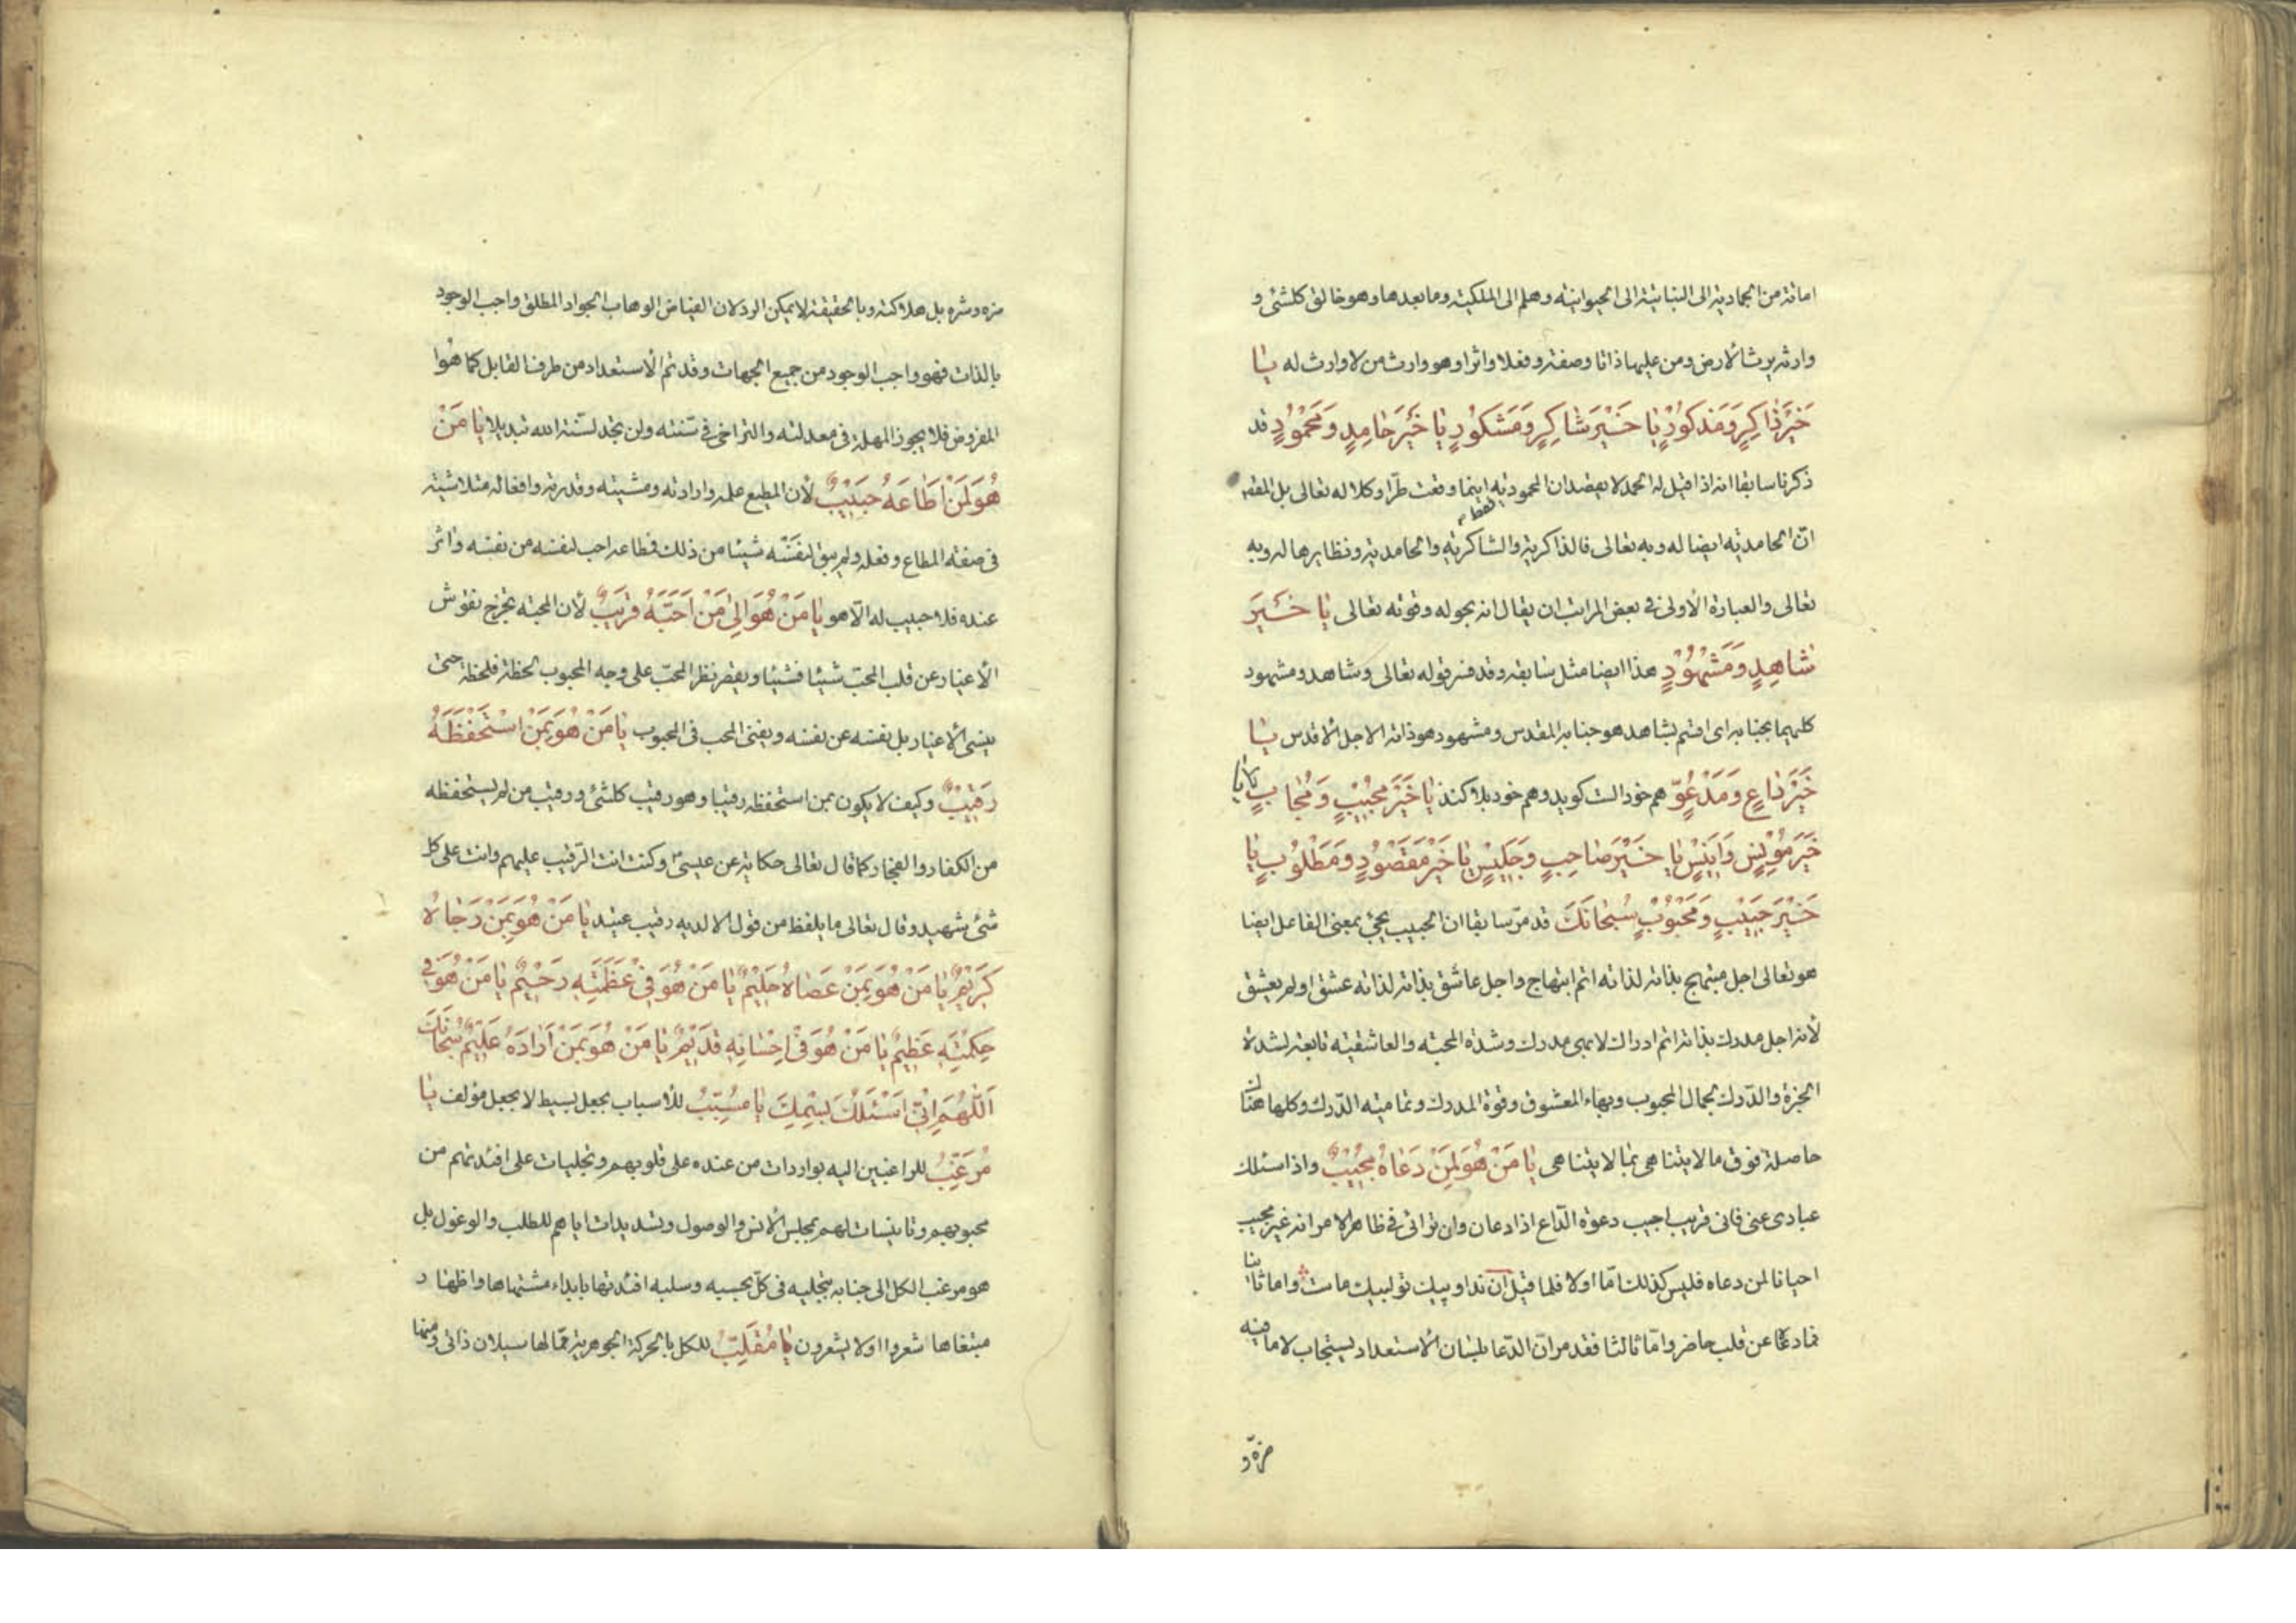 اماتة من الجمادية الى النباتية الى الحيوانية وهلم الى الملكية وما بعدها وهو خالق كلشئ و
وارثه يرث الأرض ومن عليها ذاتا وصفة وفعلا واثرا وهو وارث من لا وارث له يا
خَيْرَ ذاكِرٍ وَمَذكوُرٍ يا خَيْرَ شاكِرٍ وَمَشكوُرٍ يا خَيْرَ حامِدٍ ومَحْموُدٍ قد
ذكرنا سابقا انه اذا قيل له الحمد لا يقصد ان المحمودية اينما وقعت طرّا وكلا له تعالى بل المقصد
فقط
انّ الحامدية ايضا له وبه تعالى فالذاكرية والشاكرية والحامدية ونظايرها له وبه
تعالى والعبارة الأولى فى بعض المراتب ان يقال انه بحوله وقوته تعالى يا خَيْرَ
شاهِدٍ وَمَشْهوُدٍ هذا ايضا مثل سابقه وقد فسر قوله تعالى وشاهد ومشهود
كليهما بجنابه اى اقسم بشاهد هو جنابه المقدس ومشهود هو ذاته الاجل الأقدس يا
خَيْرَ داعٍ ومَدْعُوٍّ هم خود الست كويد وهم خود بلا كند يا خَيْرَ مُجيْبٍ وَمُجابٍ يا
خَيْرَ مُوْنِسٍ وَاَنيْسٍ يا خَيْرَ صاحِبٍ وَجَليْسٍ يا خَيْرَ مَقْصُوْدٍ ومَطْلوُبٍ يا
خَيْرَ حَبيْبٍ وَمَحْبُوْبٍ سُبْحانَكَ قد مرّ سابقا ان الحبيب يجئ بمعنى الفاعل ايضا
هو تعالى اجل مبتهج بذاته لذاته اتم ابتهاج واجل عاشق بذاته لذاته عشق او لم يعشق
لأنه اجل مدرك بذاته اتم ادراك لابهى مدرك وشدة المحبة والعاشقية تابعة لشدة
الخيرة والدّرك لجمال المحبوب وبهاء المعشوق وقوة المدرك وتمامية الدّرك وكلها هناك
حاصلة فوق ما لا يتناهى بما لا يتناهى يا مَنْ هُوَ لِمَنْ دَعاهُ مُجيْبٌ واذا سئلك
عبادى عنى فانى قريب اجيب دعوة الدّاع اذا دعان وان تراائى فى ظاهر الامر انه غير مجيب
احيانا لمن دعاه فليس كذلك امّا اولا فلما قيل ان نداوبيك تو لبيك ماست واما ثانيا
فما دعا عن قلب حاضر وامّا ثالثا فقد مر انّ الدّعا بلسان الأستعداد يستجاب لا ما فيه
مزه و
مزه وشره بل هلاكته وبالحقيقة لا يمكن الرد لان الفياض الوهاب الجواد المطلق واجب الوجود
بالذات فهو واجب الوجود من جميع الجهات وقد تم الأستعداد من طرف القابل كما هو ا
المفروض فلا يجوز المهلة فى معدلته والتراخى فى سنته ولن تجد لسّنة الله تبديلا يا مَنْ
هُوَ لِمَنْ اَطاعَهُ حَبيْبٌ لأن المطيع علمه وارادته ومشيته وقدرته وافعاله متلاشية
فى صفة المطاع وفعله ولم يبق لنفسه شيئا من ذلك فطاعه احب لنفسه من نفسه واثر
عنده فلا حبيب له الّا هو يا مَنْ هُوَ اِلى مَنْ اَحَبَّهُ قريَبٌ لأن المحبة يخرج نقوش
الأغيار عن قلب المحّب شيئا فشيئا ويقصر نظر المحّب على وجه المحبوب لحظة فلحظة حتى
ينسى الأغيار بل نفسه عن نفسه ويفنى المحب فى المحبوب يا مَنْ هُوَ بِمَنْ اسْتَحْفَظَهُ
رَقيْبٌ وكيف لا يكون بمن استحفظه رقيبا وهو رقيب كلشئ ورقيب من لم يستحفظه
من الكفار والفجار كما قال تعالى حكاية عن عيسىٰ وكنت انت الرّقيب عليهم وانت على كل
شئ شهيد وقال تعالى ما يلفظ من قول الا لديه رقيب عتيد يا مَنْ هُوَ بِمَنْ رَجاهُ
كَريْمٌ يا مَنْ هُوَ بِمَنْ عَصاهُ حَليْمٌ يا مَنْ هُوَ فِىْ عَظَمَتِهِ رَحيْمٌ يا مَنْ هُوَ فى
حِكْمَتِهِ عَظيمٌ يا مَنْ هُوَ فىْ اِحْسانِهِ قَديْمٌ يا مَنْ هُوَ بِمَنْ اَرادَهُ عَليْمٌ سُبْحانَكَ
اَللّهُمَّ اِنّى اَسْئَلُكَ بِسْمِكَ يا مُسَبِّبُ للأسباب بجعل بسيط لا بجعل مؤلف يا
مُرَغِّبُ للراغبين اليه بواردات من عنده على قلوبهم وتجليات على افئدتهم من
محبوبهم وتانيسات لهم بمجلس الأنس والوصول وتشديدات اياهم للطلب والوغول بل
هو مرغب الكل الى جنابه بتجليه فى كلّ بحسبه وسلبه افئدتها بابداء مشتهاها واظهار
مبتغاها شعروا اولا يشعرون يا مُقَلِّبُ للكل بالحركة الجوهرية ممّا لها سيلان ذاتى ومنها